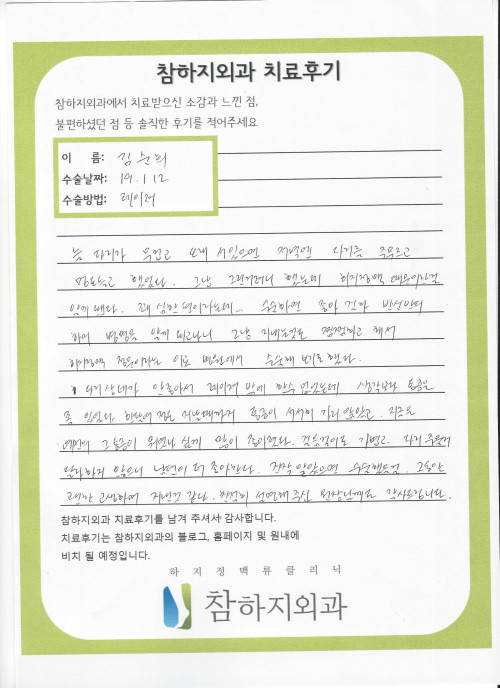 참하지외과 치료후기
참하지외과에서 치료받으신 소감과 느낀 점,
불편하셨던 점 등 솔직한 후기를 적어주세요
이 름: 김순희
수술날짜: 19. 1. 12
수술방법: 레이저
늘 다리가 무겁고 오래 서있으면 저녁엔 다리를 주무르고
했었다. 그냥 그러려니 했는데 하지정맥 때문이라는걸
알게 됐다. 꽤 심한 편이라는데... 수술하면 좋아 질까 반신반의
하며 병명을 알게 되고나니 그냥 지내는것도 찜찜하고 해서
하지정맥 전문이라는 이 병원에서 수술해 보기로 했다.
다리상태가 안좋아서 레이저 밖에 할수 없었는데 생각보다 통증은
좀 있었다. 한달 정도 지날때까지 통증이 서서히 가라앉았고, 지금은
그 통증이 많이 줄어졌다. 걸음걸이도 가볍고, 다리 주물러
달라하지 않으니 남편이 더 좋아한다. 진작 알았으면 수술했을걸. 그동안
고생하며 지낸것 같다. 친절히 설명해 주신 원장님께도 감사드립니다.
참하지외과 치료후기를 남겨 주셔서 감사합니다.
치료후기는 참하지외과의 블로그, 홈페이지 및 원내에
비치 될 예정입니다.
하지정맥류클리닉
참하지외과